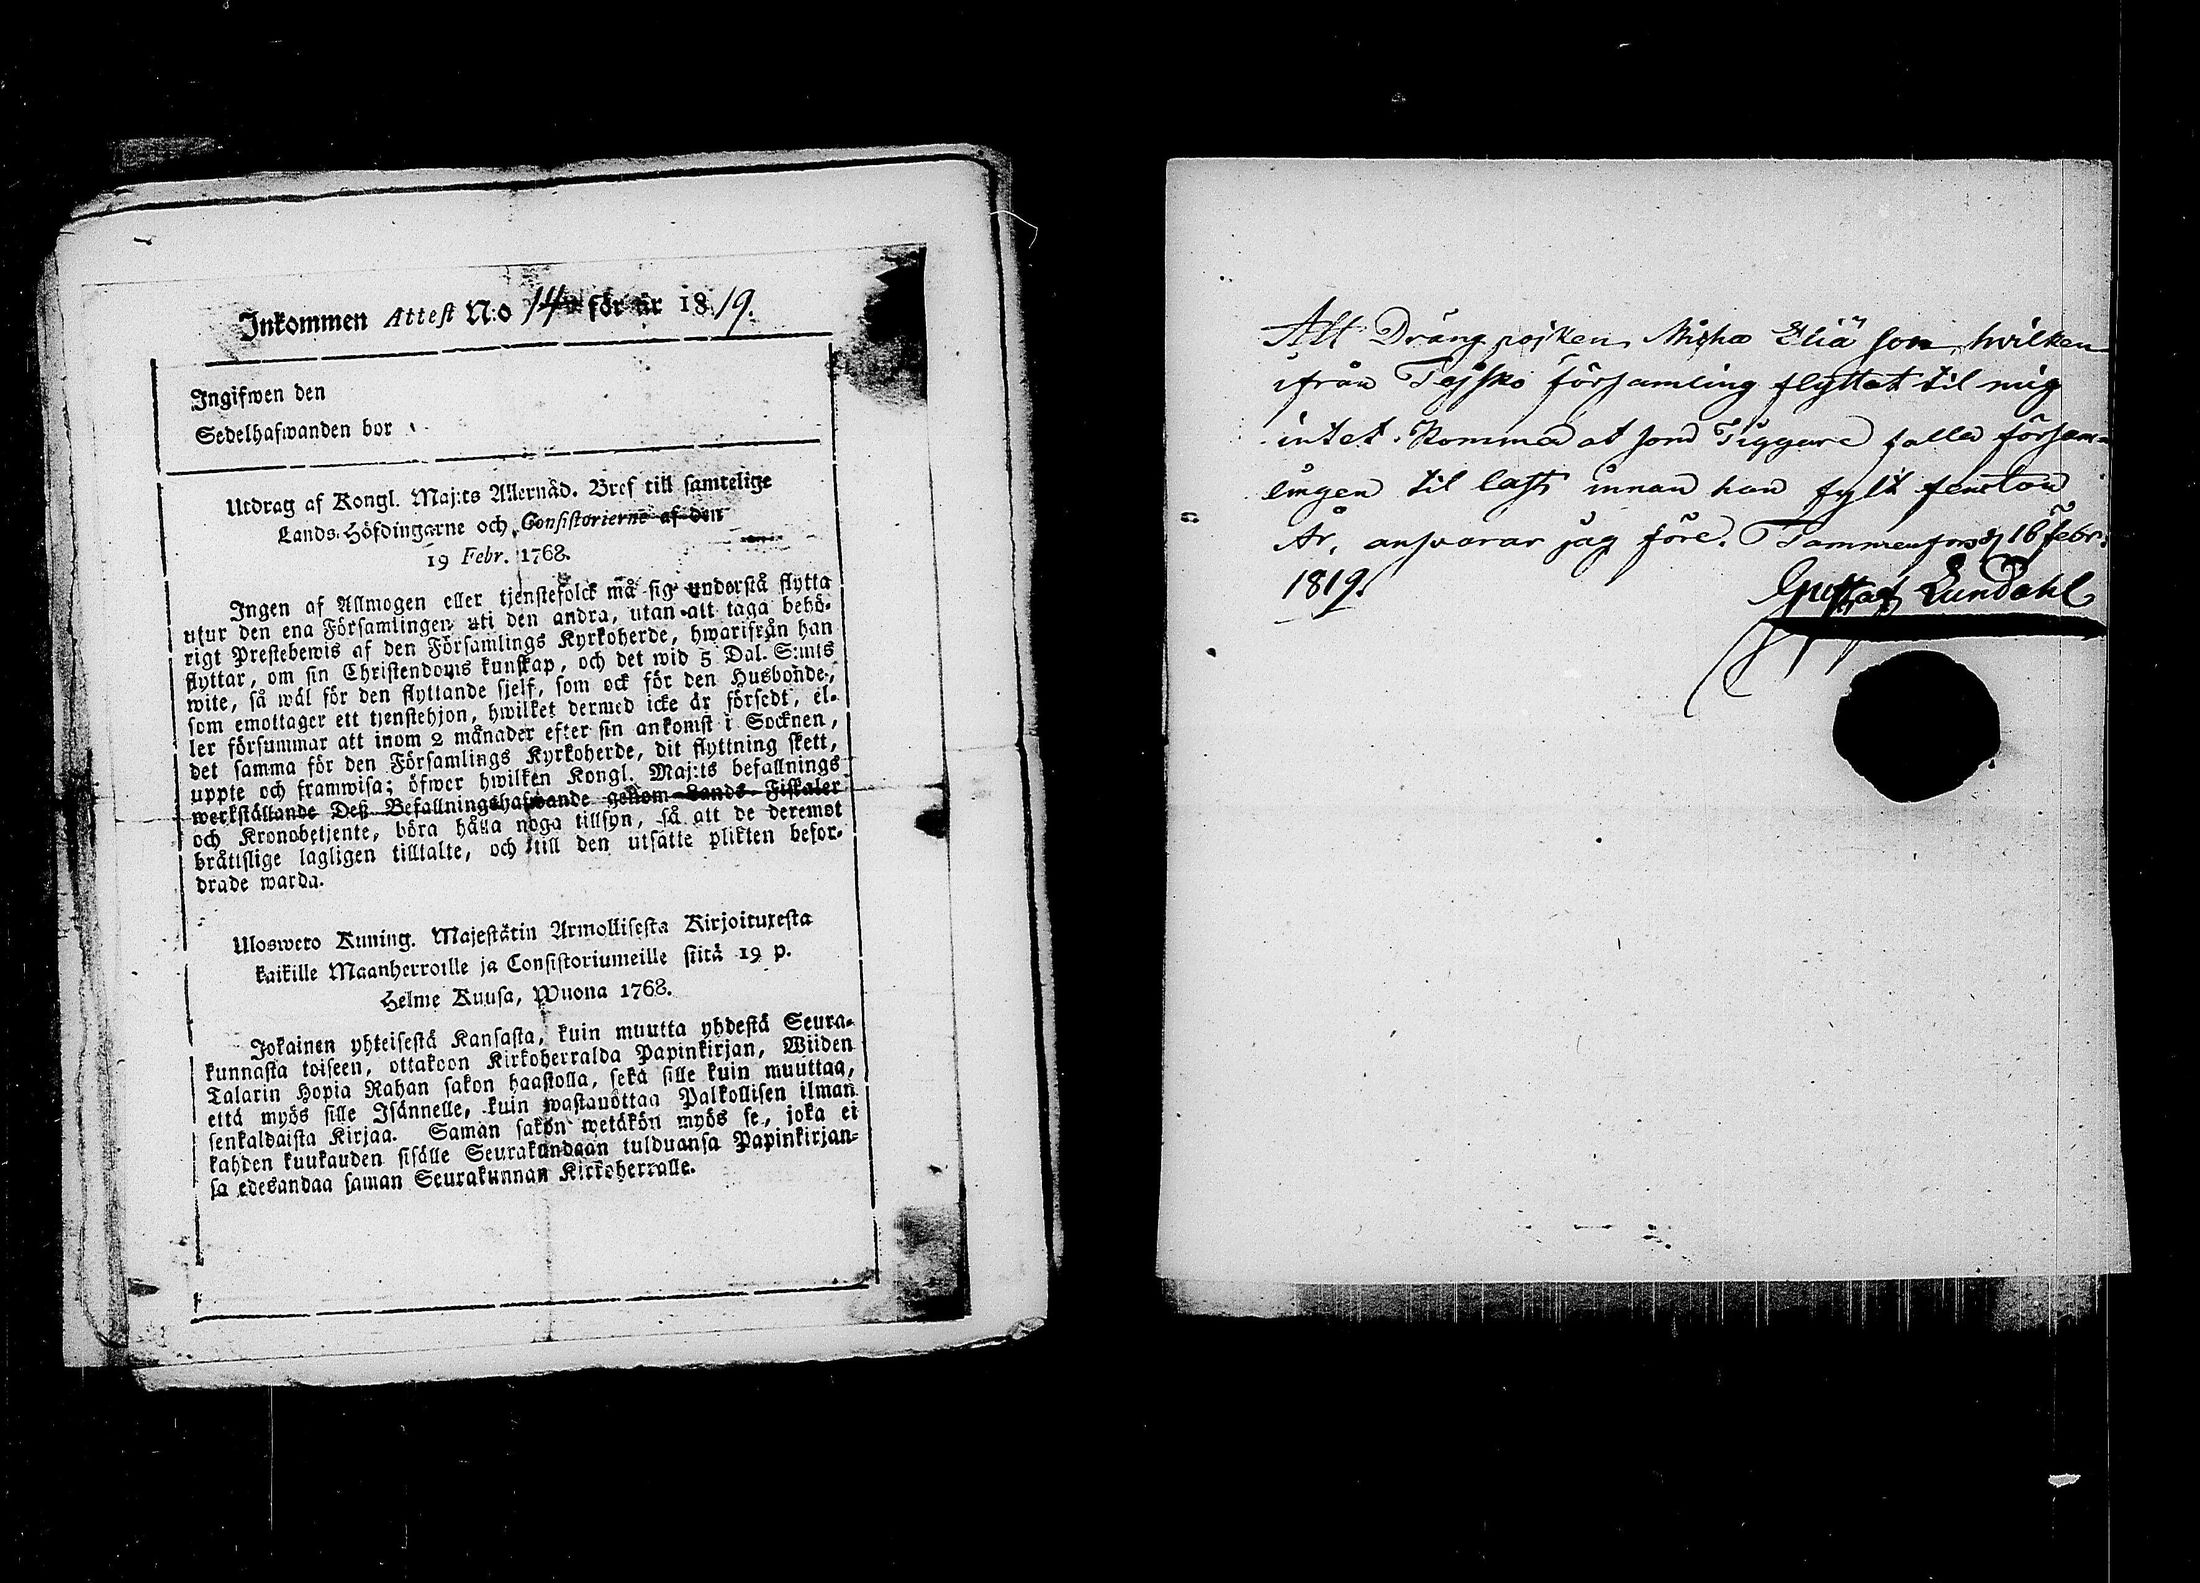 Inkommen Attest N:o 14 för år 1819.
Ingifwen den
Sedelhafwanden bor
Utdrag af Kongl. Maj:ts Allernåd. Bref till samtelige
Lands-Höfdingarne och Consistorierne af den
19 Febr. 1768.
Ingen af Allmogen eller tjenstefolck må sig understå flytta
utur den ena Församlingen uti den andra, utan att taga behö-
rigt Prestebewis af den Församlings Kyrkoherde, hwarifrån han
flyttar, om sin Christendoms kunskap, och det wid 5 Dal. S:mts
wite, så wäl för den flyttande sjelf, som ock för den Husbonde,
som emottager ett tjenstehjon, hwilket dermed icke är försedt, el-
ler försummar att inom 2 månader efter sin ankomst i Socknen,
det samma för den Församlings Kyrkoherde, dit flyttning skett,
uppte och framwisa; öfwer hwilken Kongl. Maj:ts befallnings
werkställande Deß Befallningshafwande genom Lands-Fiskaler
och Kronobetjente, böra hålla noga tillsyn, så att de deremot
bråttslige lagligen tilltalte, och till den utsatte plikten befor-
drade warda.
Uloswero Kuning. Majestätin Armollisesta Kirjoituxesta
kaikille Maanherroille ja Consistoriumeille siitä 19 p.
Helme Kuusa, Wuona 1768.
Jokainen yhteisestä Kansasta, kuin muutta yhdestä Seura-
kunnasta toiseen, ottakoon Kirkoherralda Papinkirjan, Wiiden
Talarin Hopia Rahan sakon haastolla, sekä sille kuin muuttaa,
että myös sille Isännelle, kuin wastauottaa Palkollisen ilman
senkaldaista Kirjaa. Saman sakon wetäkön myös se, joka ei
kahden kuukauden sisälle Seurakundaan tulduansa Papinkirjan-
sa edesandaa saman Seurakunnan Kirkoherralle.
Att Drängpojken Micho Eliä son, hvilken
ifrån Tajsko församling flyttat til mig
intet kommer at som Tiggare falla försam-
lingen til last innan han fylt femton
År, ansvarar jag före. 16 Febr:
1819.
Gustaf Lundahl